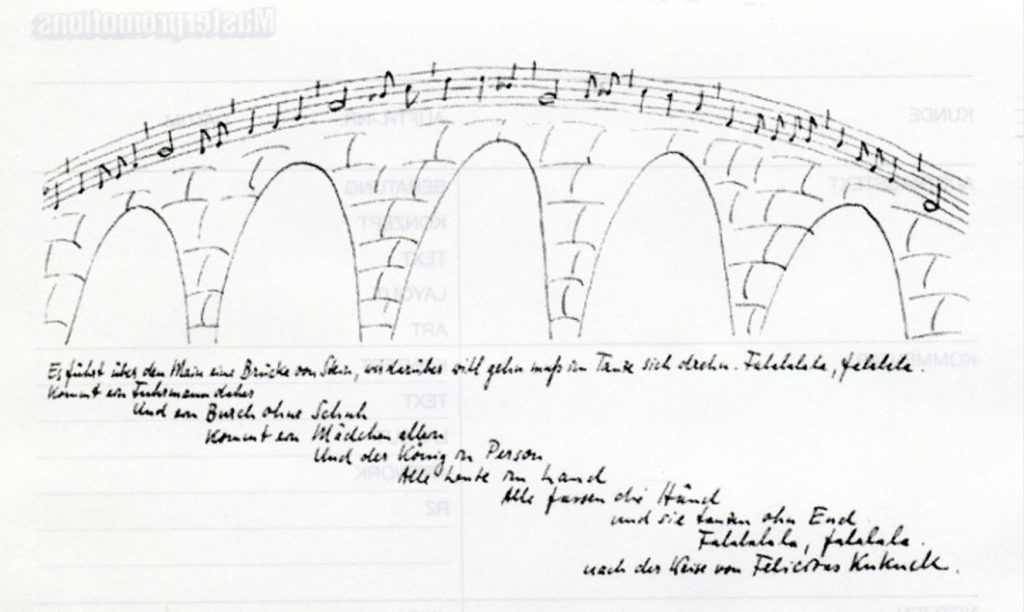 Masterpromotions
KUNDE
AUFTR.-NR.
BERATUNG
KONZEPT
TEXT
LAYOUT
ART
TEXT
RZ
Es führt über den Main eine Brücke von Stein, wer darüber will gehn muß im Tanze sich drehn. Falalalala, falalala.
Kommt ein Fuhrmann daher
Und ein Bursch ohne Schuh
Kommt ein Mädchen allein
Und der König in Person
Alle Leute im Land
Alle fassen die Händ
und sie tanzen ohn End
Falalalala, falalala.
nach der Weise von Felicitas Kukuck.